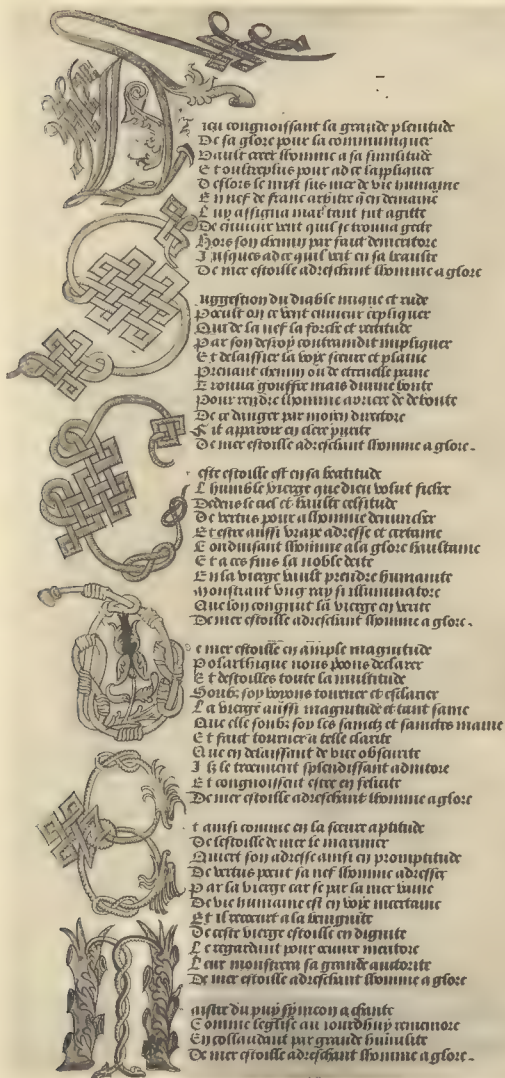 Dieu congnoissant la grande plenitude
De sa glore pour la communiquer
Vault creer lhomme a sa similitude
Et oultreplus pour ad ce lappliquer
Deslors le mist sus mer de vie humaine
En nef de franc arbitre qen demaine
Luy assigna mar tant fut agitte
De enuieux vent quil se trouua gecte
Hors son chemin par faut demeritore
Jusques ad ce quil veit en sa beaulte
De mer estoille adreschant lhomme a glore
Suggestion du diable inique et rude
Poeult on ce vent enuieux expliquer
Qui de la nef la force et rectitude
Par son desroy contraindit impliquer
Et delaissier la voye seure et plaine
Prenant chemin ou de eternelle paine
Trouua gouffre mais diuine bonte
Pour rendre lhomme de
De ce danger par moien directore
Fit apparoir en clere purite
De mer estoille adreschant lhomme a glore.
Ceste estoille est en sa beatitude
Lhumble vierge que dieu volut ficher
Dedens le ciel et haulte celsitude
De vertus pour a lhomme denuncher
Et estre aussi vraye adresse et certaine
Conduisant lhomme a la glore haultaine
Et a ces fins la noble deite
En la vierge vault prendre humanite
Monstrant vng ray si illuminatore
Que lon congnut la vierge en verite
De mer estoille adreschant lhomme a glore.
De mer estoille en ample magnitude
Polarthique nous poons declarer
Et destoilles toute la multitude
Soubz soy voyons tourner et esclarier
La vierge aussi magnitude et tant saine
Que elle soubz soy les sainctz et sainctes maine
Et faict tourner a telle clarite
Que en delaissant de vice obscurite
Ilz le treuuent splendissant adiutore
Et congnoissent estre en felicite
De mer estoille adreschant lhomme a glore
Et ainsi comme en la seure aptitude
De lestoille de mer le marinier
Quiert son adresse ainsi en promptitude
De vertus peut sa nef lhomme adresser
Par la vierge car se par la mer vaine
De vie humaine est en voye incertaine
Et il recoeurt a la benignite
De ceste vierge estoille en dignite
Le regardant pour oeuure meritore
Leur monstrera sa grande auctorite
De mer estoille adreschant lhomme a glore
Maistre du puy symeon a chante
Comme leglise au iourdhuy rememore
En collaudant par grande humilite
De mer estoille adreschant lhomme a glore.